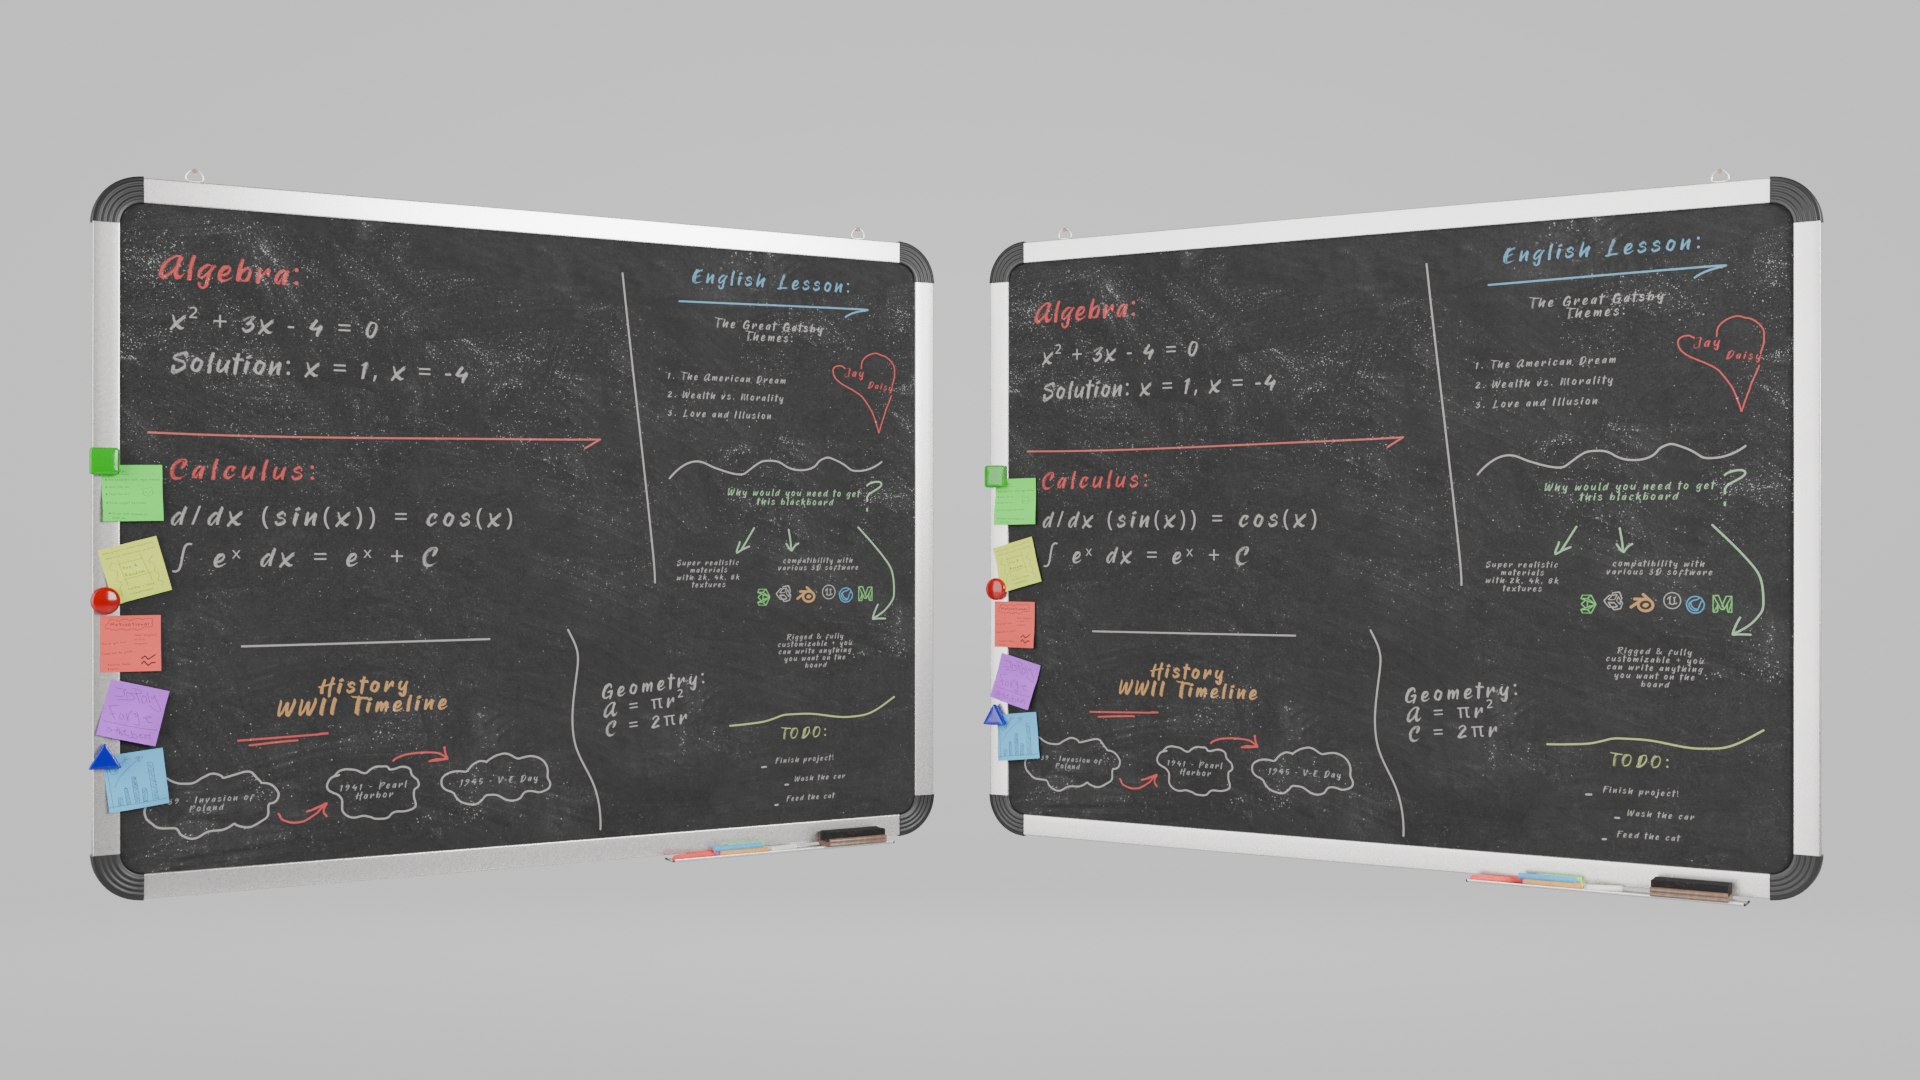 Algebra:
x² + 3x - 4 = 0
Solution: x = 1, x = -4
Calculus:
d/dx (sin(x)) = cos(x)
∫ eˣ dx = eˣ + C
History
WWII Timeline
39 - Invasion of
Poland
1941 - Pearl
Harbor
1945 - V-E Day
Geometry:
A = πr²
C = 2πr
English Lesson:
The Great Gatsby
Themes:
1. The American Dream
2. Wealth vs. Morality
3. Love and Illusion
Jay
Daisy
Why would you need to get
this blackboard ?
Super realistic
materials
with 2k, 4k, 8k
textures
compatibility with
various 3D software
Rigged & fully
customizable + you
can write anything
you want on the
board
TODO:
- Finish project!
- Wash the car
- Feed the cat
Algebra:
x² + 3x - 4 = 0
Solution: x = 1, x = -4
Calculus:
d/dx (sin(x)) = cos(x)
∫ eˣ dx = eˣ + C
History
WWII Timeline
39 - Invasion of
Poland
1941 - Pearl
Harbor
1945 - V-E Day
Geometry:
A = πr²
C = 2πr
English Lesson:
The Great Gatsby
Themes:
1. The American Dream
2. Wealth vs. Morality
3. Love and Illusion
Jay
Daisy
Why would you need to get
this blackboard ?
Super realistic
materials
with 2k, 4k, 8k
textures
compatibility with
various 3D software
Rigged & fully
customizable + you
can write anything
you want on the
board
TODO:
- Finish project!
- Wash the car
- Feed the cat